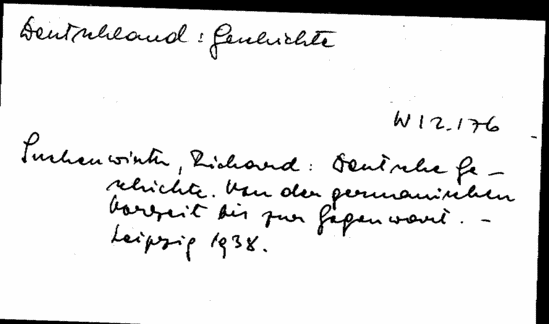 Deutschland: Geschichte
W 12.176
Suchenwirth, Richard: Deutsche Ge-
schichte. Von der germanischen
Vorzeit bis zur Gegenwart. -
Leipzig 1938.